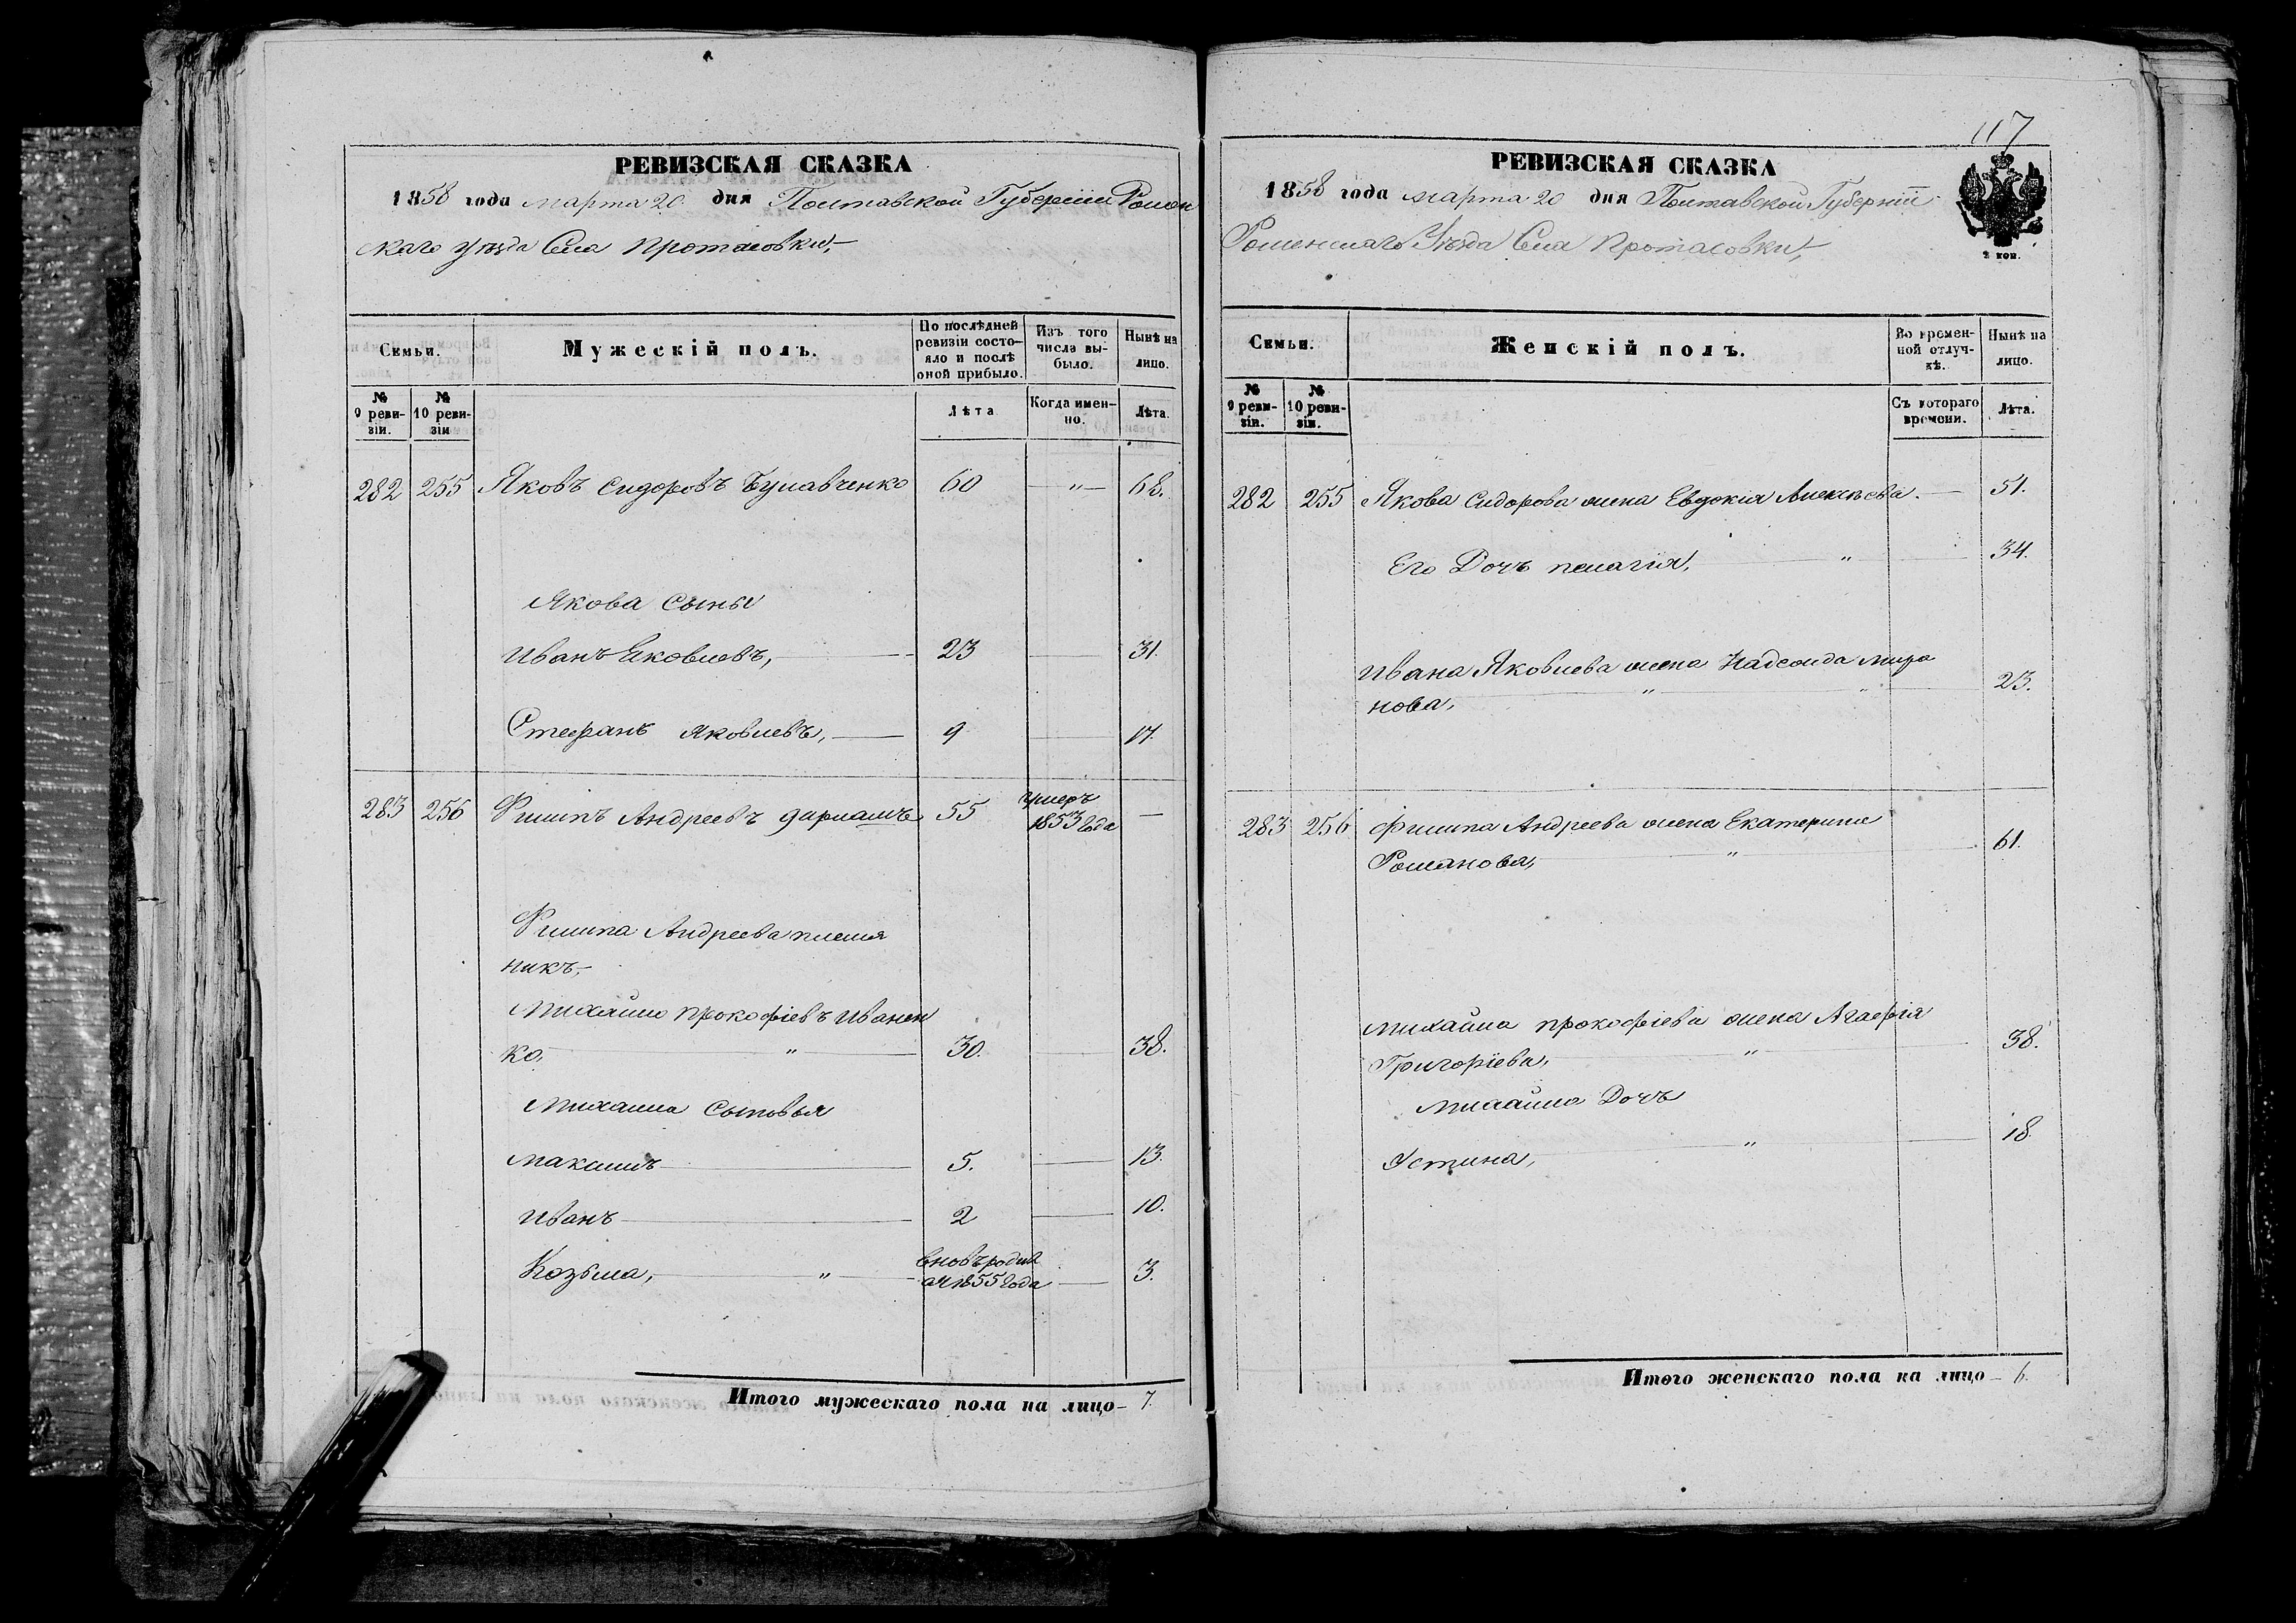 РЕВИЗСКАЯ СКАЗКА
1858 года марта 20 дня Полтавской Губерніи Ромен
скаго уѣзда Села Протасовки,
Семьи.
Мужескій полъ.
По послѣдней ревизіи состояло и послѣ оной прибыло.
Изъ того числа выбыло.
Нынѣ на лицо.
№ 9 ревизіи.
№ 10 ревизіи
Лѣта
Когда именно.
Лѣта.
282 255 Яковъ Сидоровъ Булавченко 60 — " — 68.
Якова Сыны
Иванъ Яковлевъ, 23 31.
Стефанъ Яковлевъ, 9 17.
283 256 Филипъ Андреевъ 55 умеръ 1853 года —
Филипа Андреева племя
никъ,
Михайло Прокофіевъ Иванен
ко, " 30. 38.
Михаила Сыновья
Максимъ 5. 13.
Иванъ 2 10.
Козьма, " вновь родил ся 1855 года 3.
Итого мужескаго пола на лицо - 7.
117
РЕВИЗСКАЯ СКАЗКА
1858 года марта 20 дня Полтавской Губерніи
Роменскаго Уѣзда Села Протасовки,
2 коп.
Семьи.
Женскій полъ.
Во временной отлучкѣ.
Нынѣ на лицо.
№ 9 ревизіи.
№ 10 ревизіи.
Съ котораго времени.
Лѣта.
282 255 Якова Сидорова жена Евдокія Алексѣева. 51.
Его Дочъ Пелагія, " 34.
Ивана Яковлева жена Надежда Миро
нова, " " 23.
283 256 Филипа Андреева жена Екатерина
Романова, " 61.
Михайла Прокофіева жена Агафія
Григоріева, " 38.
Михайла Дочъ
Устина, " 18.
Итого женскаго пола на лицо - 6.